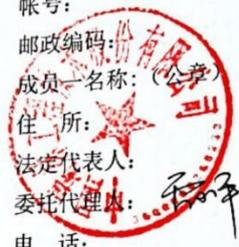 帐号：
邮政编码：
成员一名称：（公章）
住　所：
法定代表人：
委托代理人：
电　话：
份有限公司